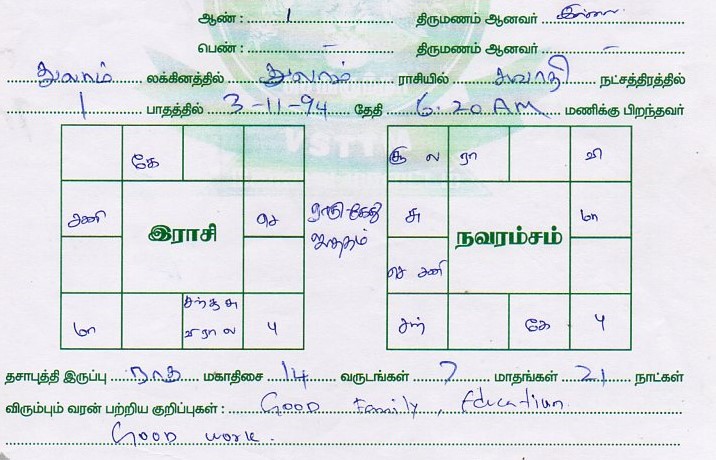 ஆண் : 1 திருமணம் ஆனவர் இல்லை
பெண் : – திருமணம் ஆனவர் –
துலாம் லக்கினத்தில் துலாம் ராசியில் சுவாதி நட்சத்திரத்தில்
1 பாதத்தில் 3-11-94 தேதி 6.20 AM மணிக்கு பிறந்தவர்
கே
சனி செ
இராசி
மா சந் சூ சு வி ரா ல பு
ராகு-கேது
ஜாதகம்
சூ ல ரா வி
சு மா
நவரம்சம்
செ சனி
சந் கே பு
தசாபுத்தி இருப்பு ராகு மகாதிசை 14 வருடங்கள் 7 மாதங்கள் 21 நாட்கள்
விரும்பும் வரன் பற்றிய குறிப்புகள் : Good Family, Education.
Good work.